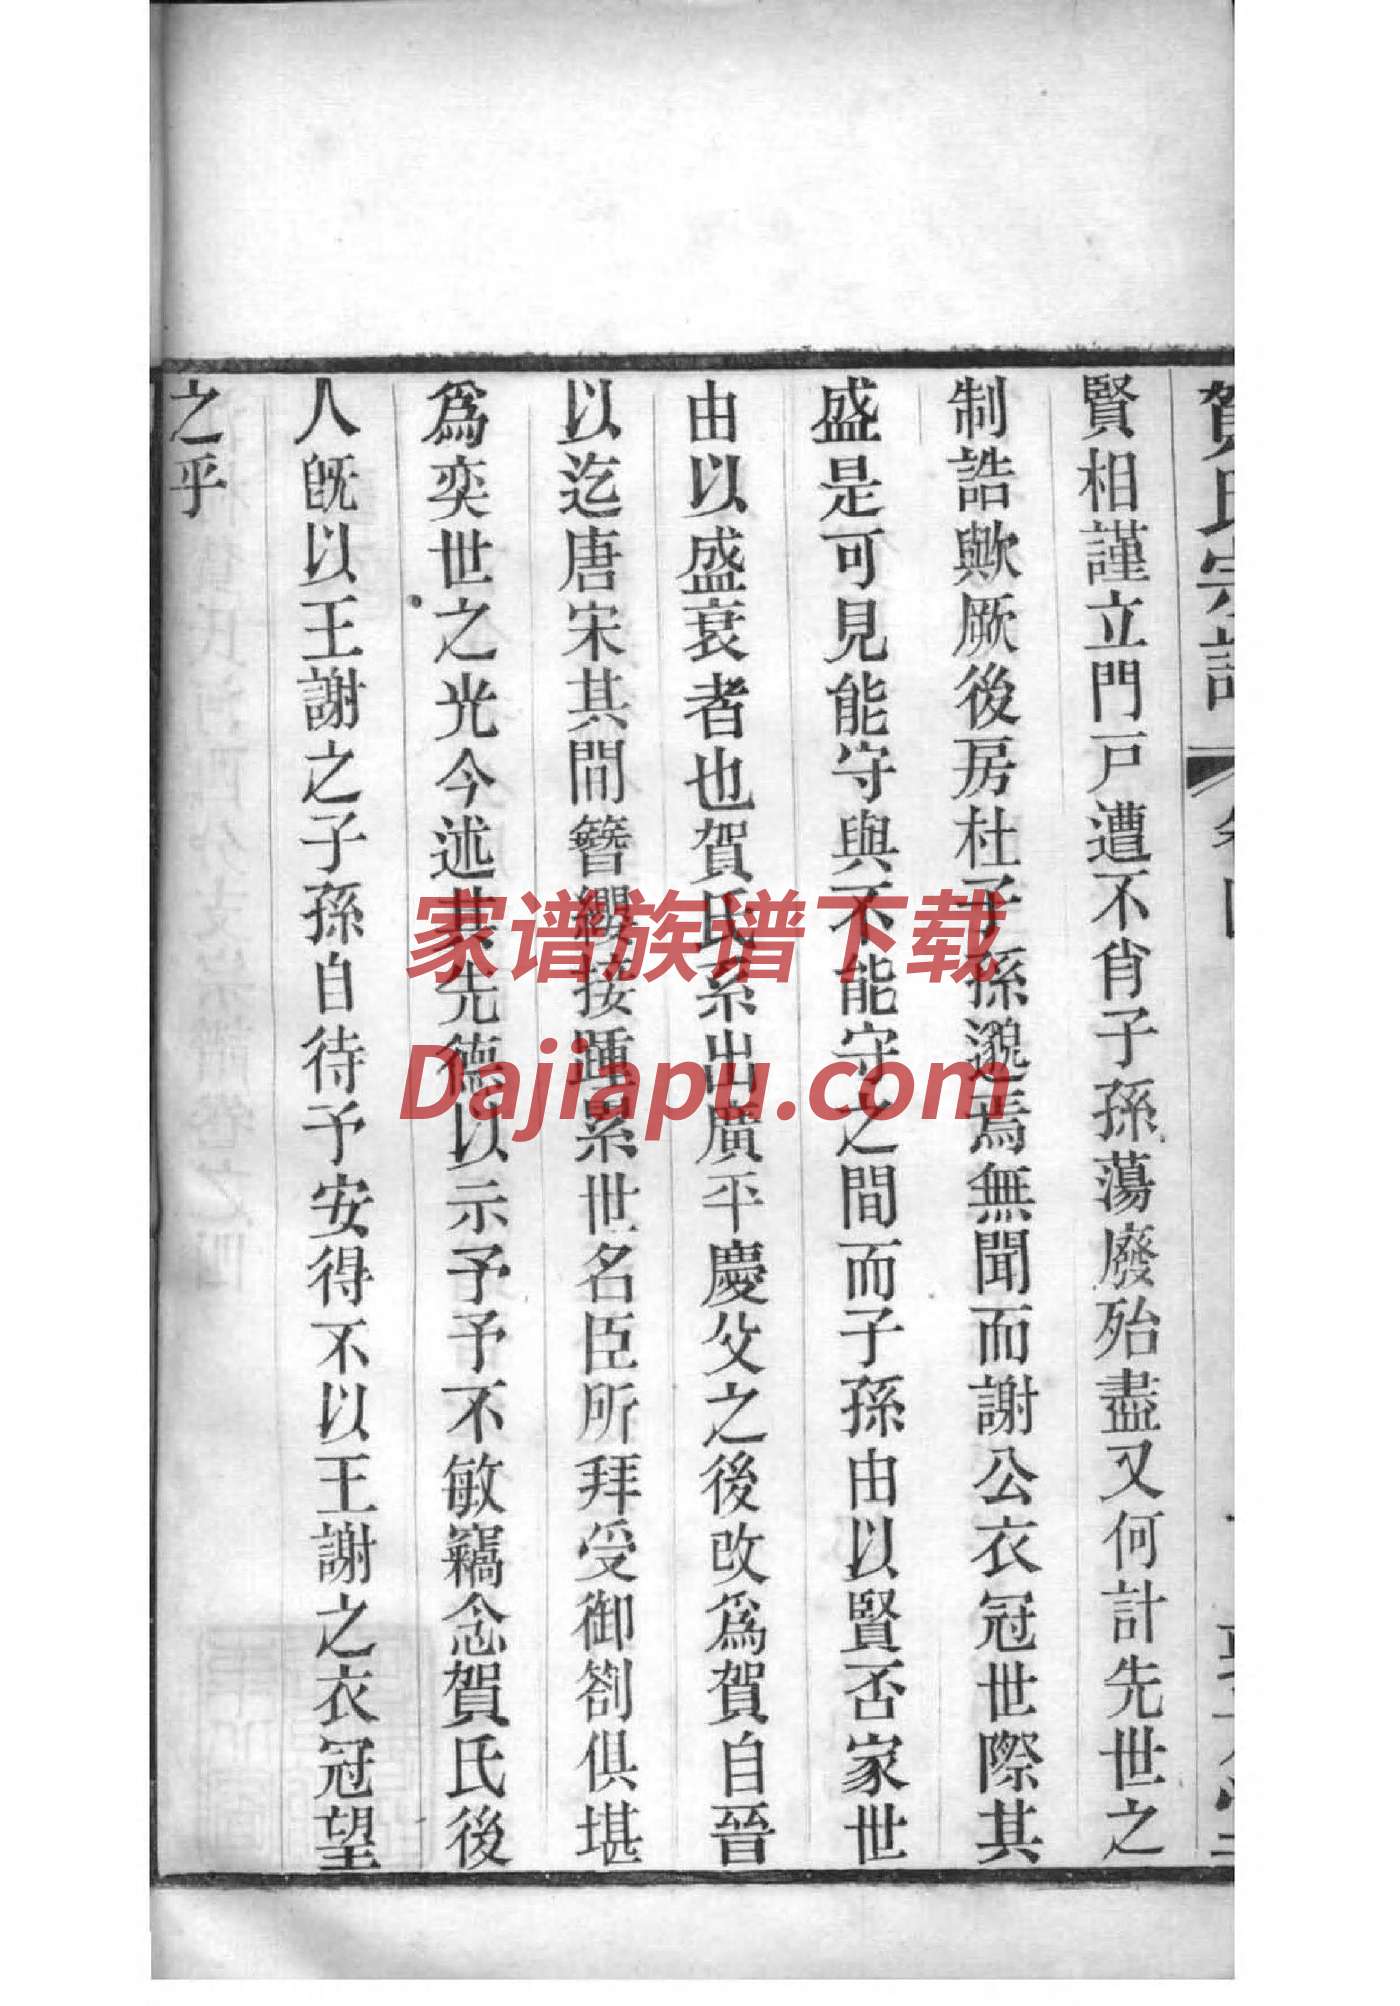 賀氏宗譜 卷四
賢相謹立門戸遭不肖子孫蕩廢殆盡又何計先世之
制誥歟厥後房杜子孫邈焉無聞而謝公衣冠世際其
盛是可見能守與不能守之間而子孫由以賢否家世
由以盛衰者也賀氏系出廣平慶父之後改爲賀自晉
以迄唐宋其間簪纓接踵累世名臣所拜受御劄俱堪
爲奕世之光今述其先德以示予予不敏竊念賀氏後
人旣以王謝之子孫自待予安得不以王謝之衣冠望
之乎
家谱族谱下载
Dajiapu.com